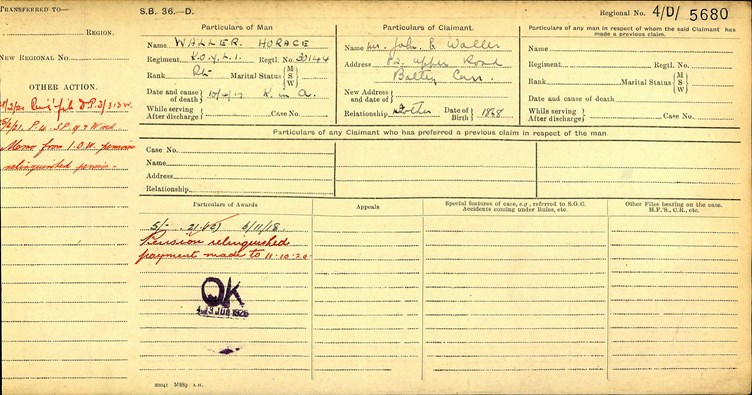 TRANSFERRED TO—
REGION.
NEW REGIONAL No.
OTHER ACTION.
Memo from I.O.W. pensioner
relinquished pension
S.B. 36.—D.
Regional No. 4/D/ 5680
Particulars of Man
Name WALLER. HORACE
Regiment K.O.Y.L.I. Regtl. No. 30144
Rank Pte Marital Status M S W
Date and cause of death 10/4/17 K in A.
While serving
After discharge Case No.
Particulars of Claimant.
Name Mr. John. E Waller
Address 82. Upper Road
Batley Carr.
New Address and date of
Relationship Father Date of Birth 1868
Particulars of any man in respect of whom the said Claimant has made a previous claim.
Name
Regiment Regtl. No.
Rank Marital Status M S W
Date and cause of death
While serving
After discharge Case No.
Particulars of any Claimant who has preferred a previous claim in respect of the man
Case No.
Name
Address
Relationship
Particulars of Awards
5/- 6/11/18.
Pension relinquished
payment made to 11.10.20.
OK
JUN 1926
Appeals
Special features of case, e.g., referred to S.G.C. Accidents coming under Rules, etc.
Other Files bearing on the case. M.F.'s, C.R., etc.